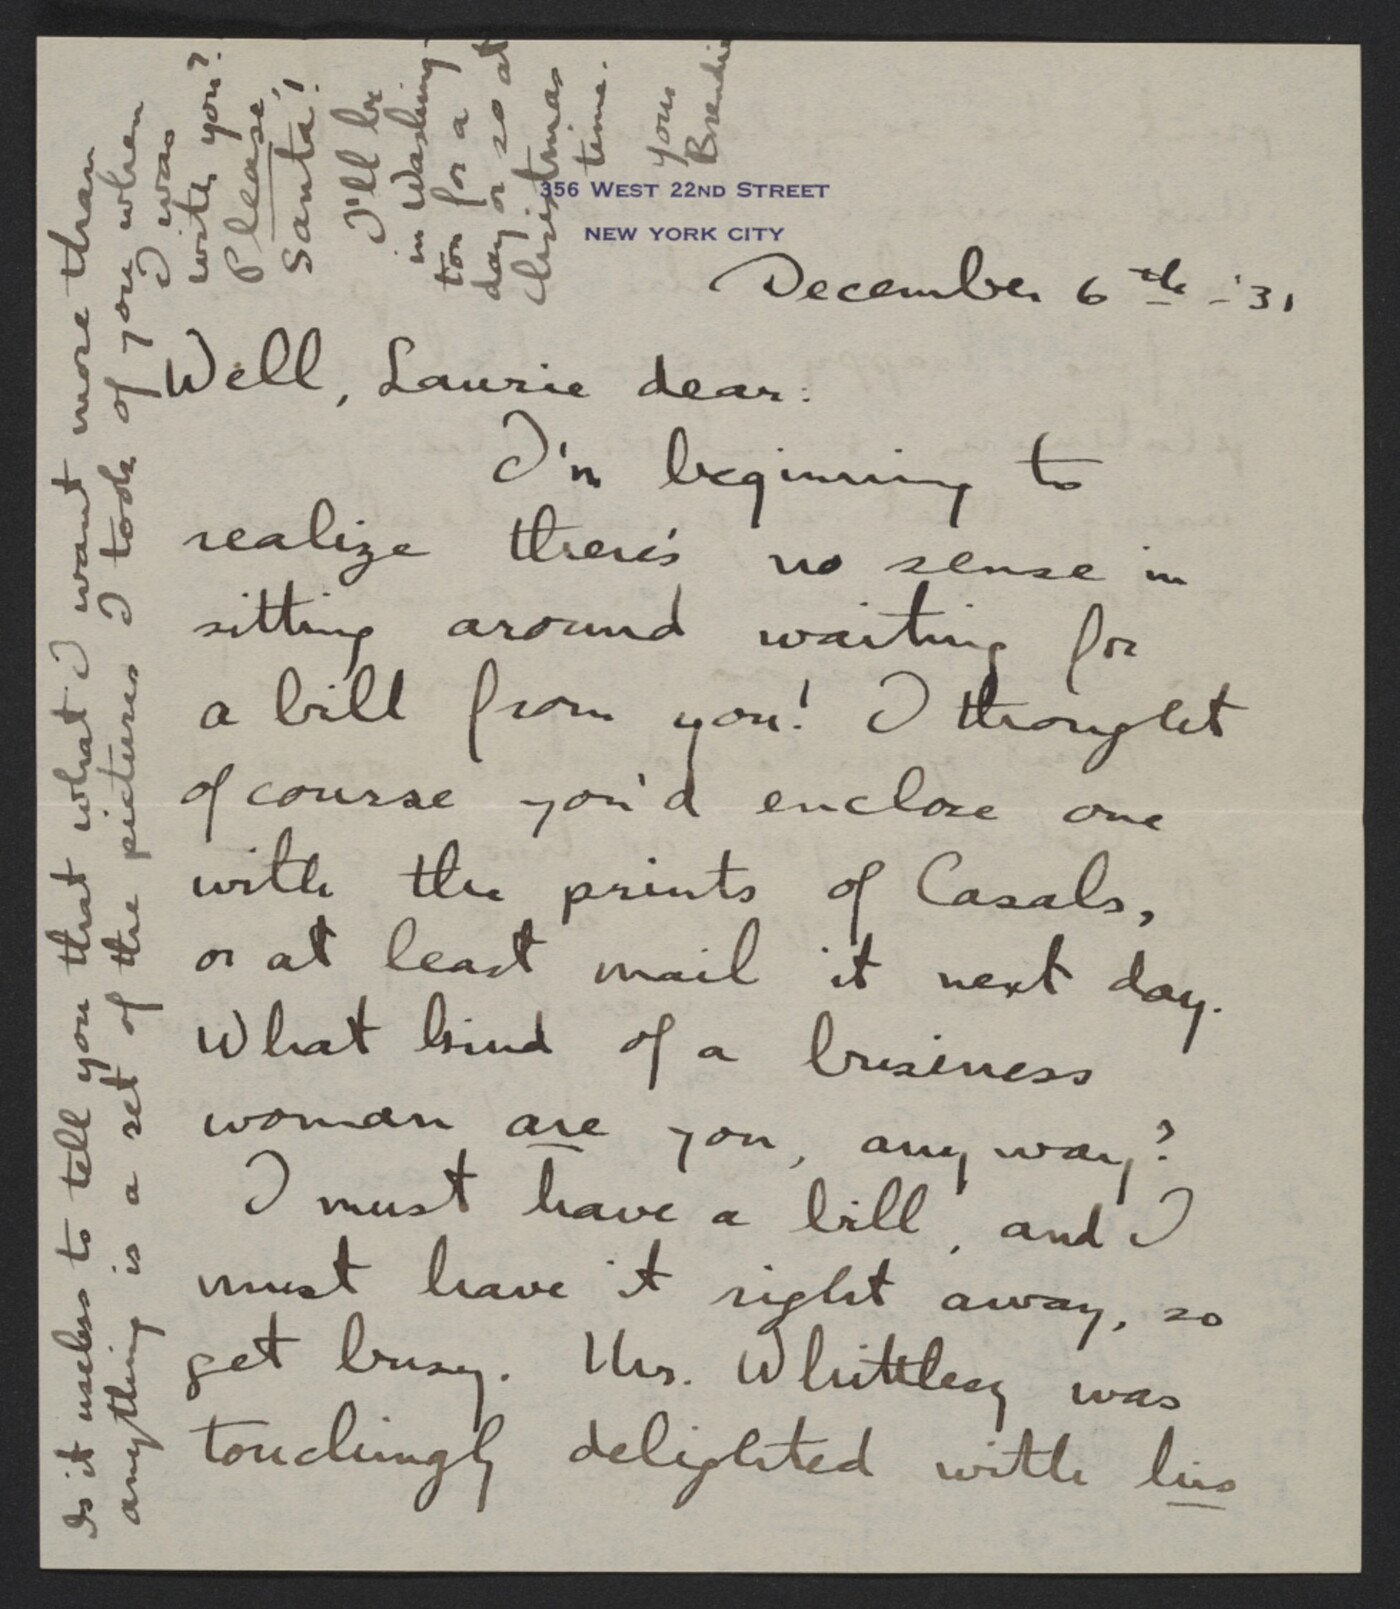 356 WEST 22ND STREET
NEW YORK CITY
December 6th - '31
Well, Laurie dear:
I'm beginning to
realize there's no sense in
sitting around waiting for
a bill from you! I thought
of course you'd enclose one
with the prints of Casals,
or at least mail it next day.
What kind of a business
woman are you, anyway?
I must have a bill, and I
must have it right away, so
get busy. Mr. Whittlesey was
touchingly delighted with his
Is it useless to tell you that what I want more than
anything is a set of the pictures I took of you when
I was
with you?
Please,
Santa!
I'll be
in Washing-
ton for a
day or so at
Christmas
time.
Yours
Brendie